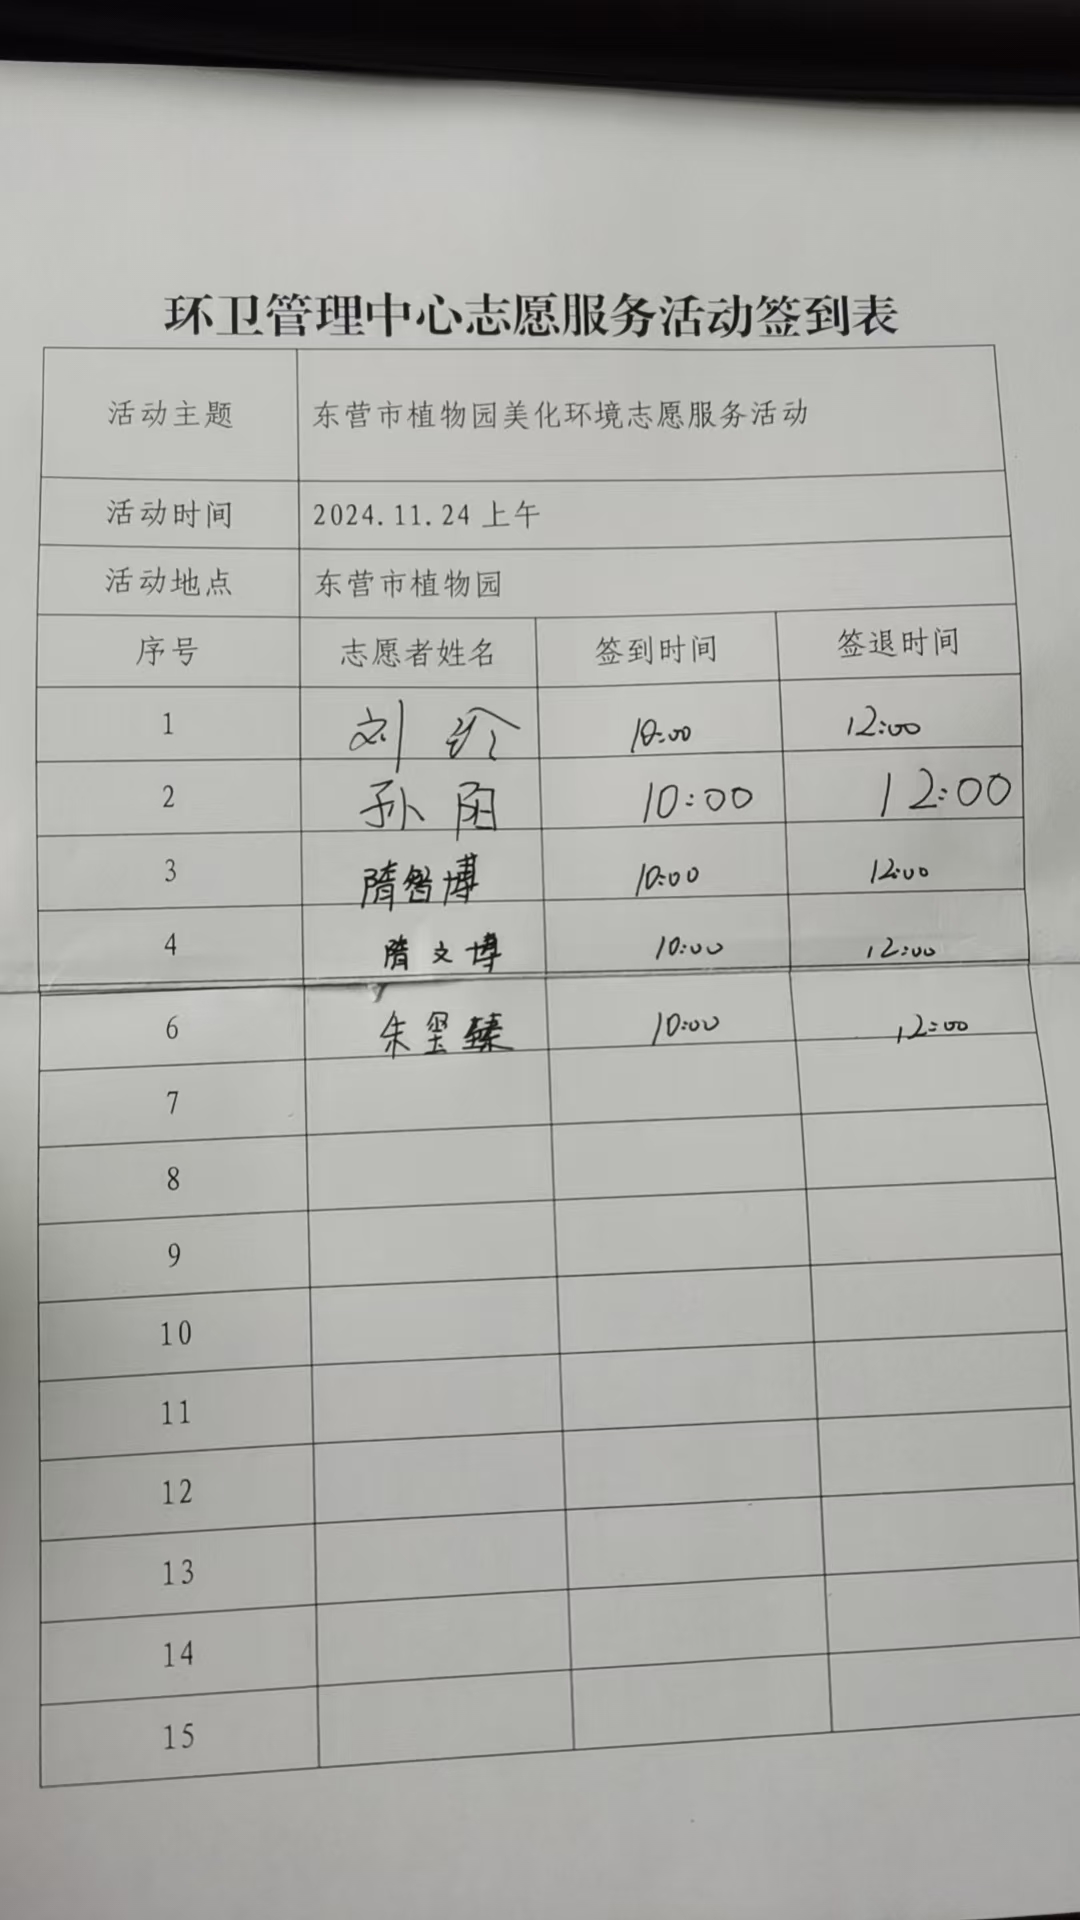 环卫管理中心志愿服务活动签到表
活动主题 东营市植物园美化环境志愿服务活动
活动时间 2024.11.24 上午
活动地点 东营市植物园
序号 志愿者姓名 签到时间 签退时间
1 刘 10:00 12:00
2 孙阳 10:00 12:00
3 隋智博 10:00 12:00
4 隋文博 10:00 12:00
6 朱玺臻 10:00 12:00
7
8
9
10
11
12
13
14
15